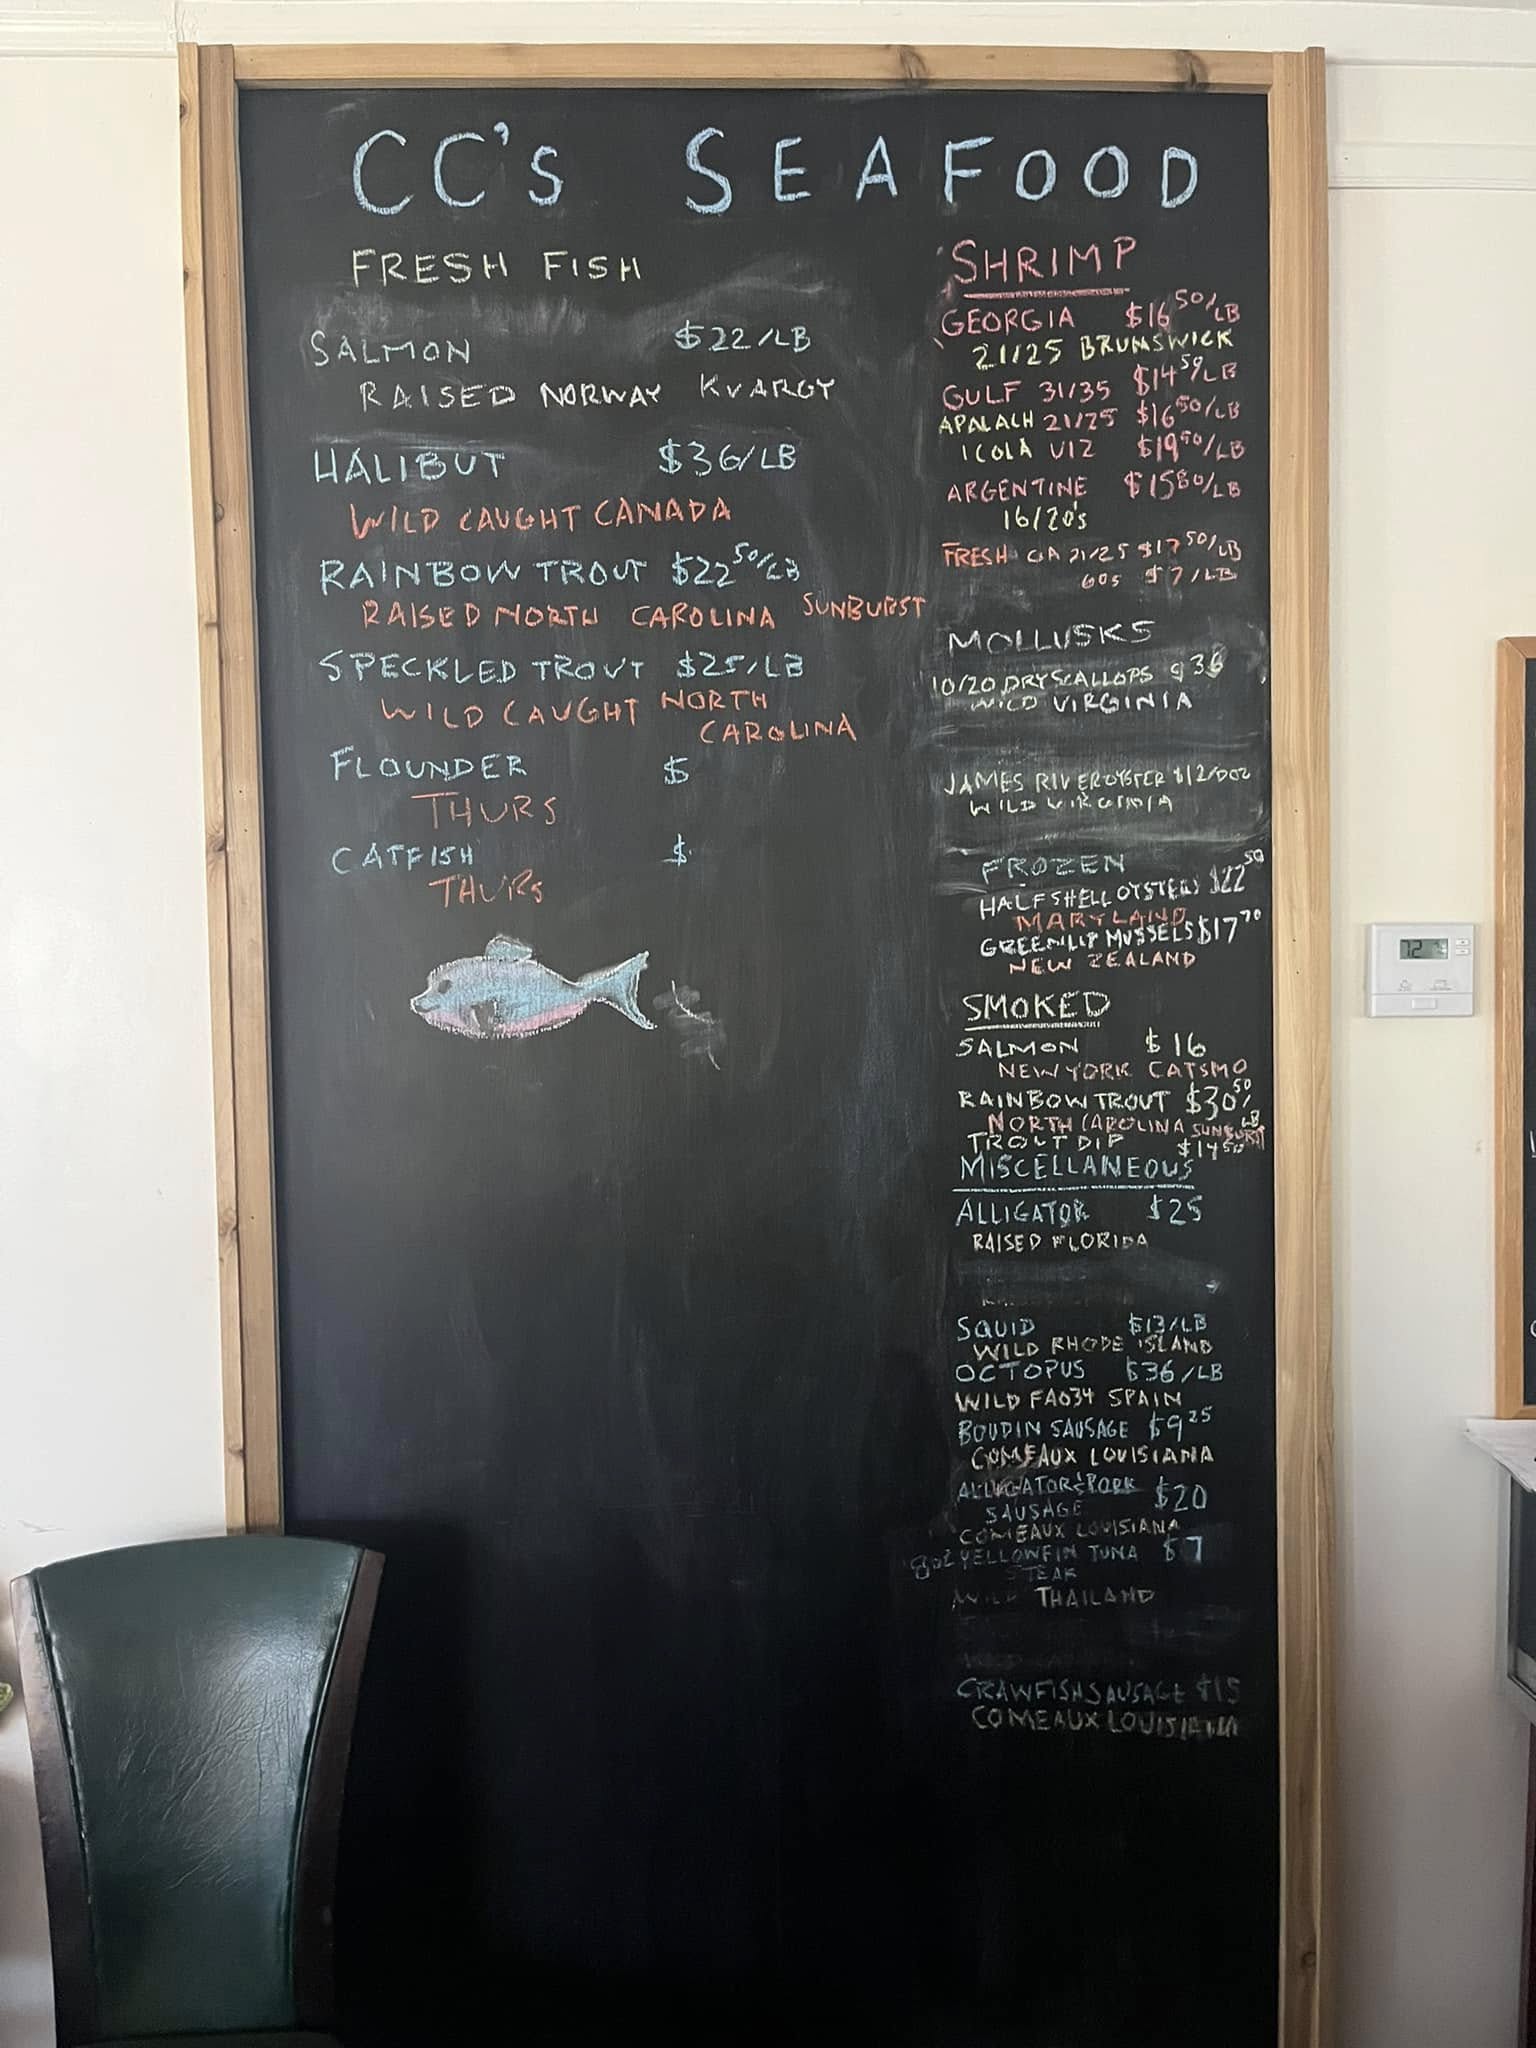 CC's SEAFOOD
FRESH FISH
SALMON $22/LB
RAISED NORWAY KVAROY
HALIBUT $36/LB
WILD CAUGHT CANADA
RAINBOW TROUT $22 50/LB
RAISED NORTH CAROLINA SUNBURST
SPECKLED TROUT $25/LB
WILD CAUGHT NORTH
CAROLINA
FLOUNDER $
THURS
CATFISH $
THURS
SHRIMP
GEORGIA $16 50/LB
21/25 BRUNSWICK
GULF 31/35 $14 50/LB
APALACH 21/25 $16 50/LB
ICOLA U12 $19 90/LB
ARGENTINE $15 80/LB
16/20's
FRESH GA 21/25 $17 50/LB
60s $7/LB
MOLLUSKS
10/20 DRY SCALLOPS $36
WILD VIRGINIA
JAMES RIVER OYSTER $12/DOZ
WILD VIRGINIA
FROZEN
HALFSHELL OYSTERS $22 50
MARYLAND
GREENLIP MUSSELS $17 70
NEW ZEALAND
SMOKED
SALMON $16
NEW YORK CATSMO
RAINBOW TROUT $30 50/LB
NORTH CAROLINA SUNBURST
TROUT DIP $14 50
MISCELLANEOUS
ALLIGATOR $25
RAISED FLORIDA
SQUID $13/LB
WILD RHODE ISLAND
OCTOPUS $36/LB
WILD FAO34 SPAIN
BOUDIN SAUSAGE $9 25
COMEAUX LOUISIANA
ALLIGATOR & PORK $20
SAUSAGE
COMEAUX LOUISIANA
8oz YELLOWFIN TUNA $7
STEAK
WILD THAILAND
CRAWFISH SAUSAGE $15
COMEAUX LOUISIANA
72